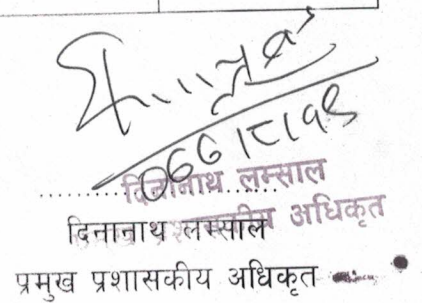 ०७७।८।१९
दिनानाथ लम्साल
प्रशासकीय अधिकृत
दिनानाथ लम्साल
प्रमुख प्रशासकीय अधिकृत